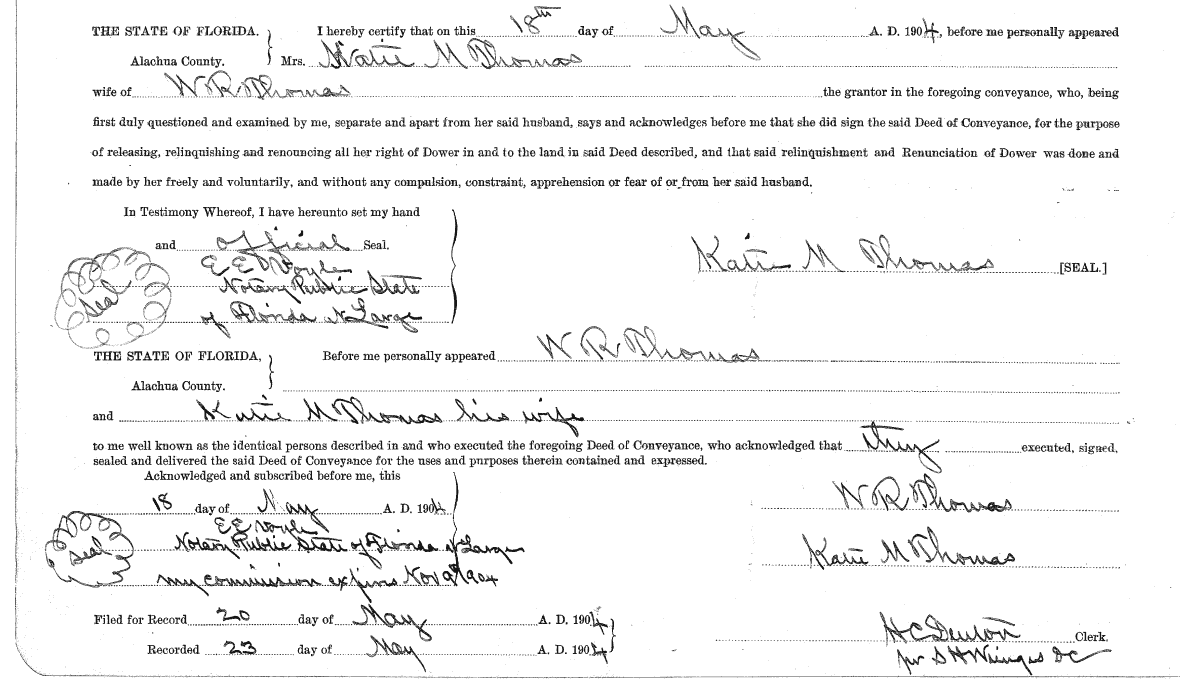 THE STATE OF FLORIDA. I hereby certify that on this 18th day of May A. D. 1904, before me personally appeared
Alachua County. Mrs. Katie M Thomas
wife of W. R. Thomas the grantor in the foregoing conveyance, who, being
first duly questioned and examined by me, separate and apart from her said husband, says and acknowledges before me that she did sign the said Deed of Conveyance, for the purpose
of releasing, relinquishing and renouncing all her right of Dower in and to the land in said Deed described, and that said relinquishment and Renunciation of Dower was done and
made by her freely and voluntarily, and without any compulsion, constraint, apprehension or fear of or from her said husband.
In Testimony Whereof, I have hereunto set my hand
and official Seal.
E E Voyle
Katie M Thomas [SEAL.]
Notary Public State
Seal
of Florida at Large
THE STATE OF FLORIDA, Before me personally appeared W R Thomas
Alachua County.
and Katie M Thomas his wife
to me well known as the identical persons described in and who executed the foregoing Deed of Conveyance, who acknowledged that they executed, signed,
sealed and delivered the said Deed of Conveyance for the uses and purposes therein contained and expressed.
Acknowledged and subscribed before me, this
18 day of May A. D. 1904
W R Thomas
E E Voyle
Notary Public State of Florida at Large
Seal
Katie M Thomas
my commission expires Nov 9 1904
Filed for Record 20 day of May A. D. 1904
H C Denton Clerk.
Recorded 23 day of May A. D. 1904
per S H Wienges DC